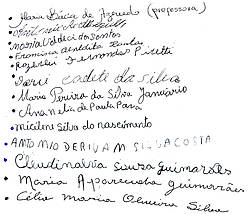 • Maria Lúcia de Azevedo (professora)
•
• Maria Valdeci dos Santos
• Francisca
• Fernandes Pinetti
• cadete da silva
• Maria Pereira da Silva Januário
• Ana neta de Paula Paiva
• micilene Silva do nascimento
• ANTONIO DERIVAM SILVA COSTA
• Claudinalva Souza guimarães
• Maria Aparecida guimarães
• Célia Maria Oliveira Silva